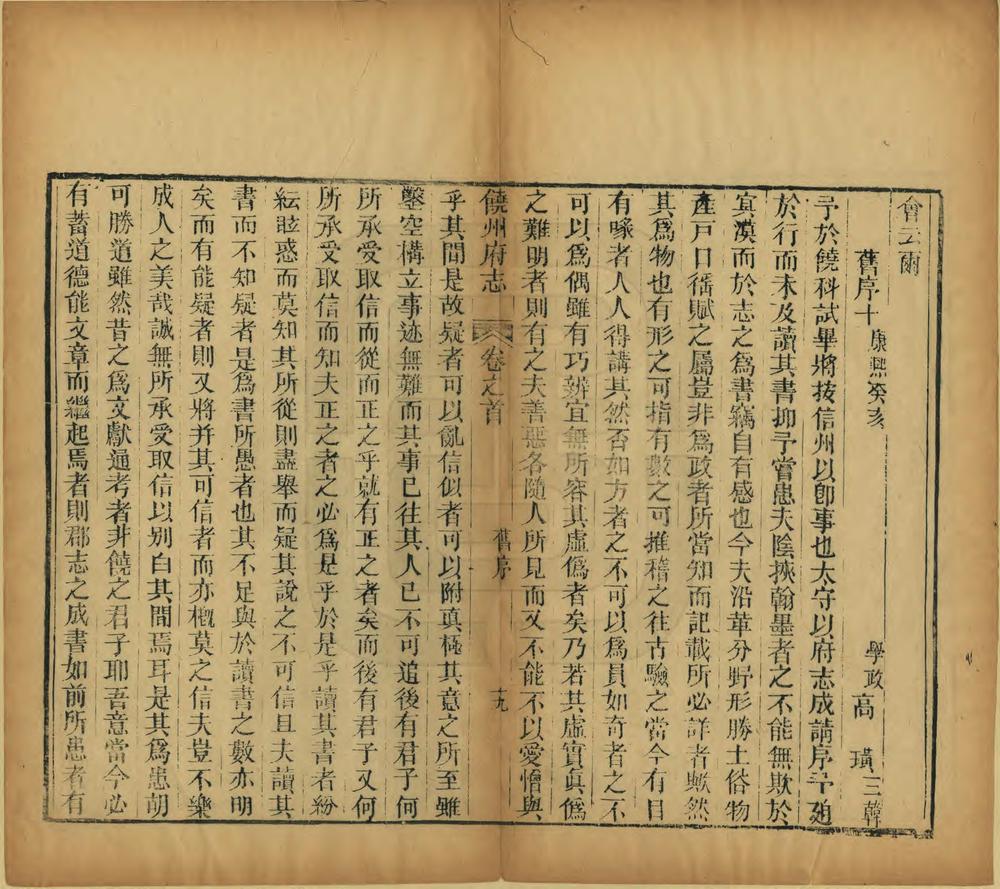 會云爾
舊序十 康熙癸亥 學政高 璜 三韓
予於饒科試畢將按信州以卽事也太守以府志成請序予廹
於行而未及讀其書抑予嘗患夫陰挾翰墨者之不能無欺於
寞漠而於志之爲書竊自有感也今夫沿革分野形勝土俗物
產戸口徭賦之屬豈非爲政者所當知而記載所必詳者歟然
其爲物也有形之可指有數之可推稽之往古驗之當今有目
有喙者人人得講其然否如方者之不可以爲員如奇者之不
可以爲偶雖有巧辨宜無所容其虛僞者矣乃若其虛實眞僞
之難明者則有之夫善惡各隨人所見而又不能不以愛憎與
饒州府志 卷之首 舊序 十九
乎其間是故疑者可以亂信似者可以附眞極其意之所至雖
鑿空構立事迹無難而其事已往其人已不可追後有君子何
所承受取信而從而正之乎就有正之者矣而後有君子又何
所承受取信而知夫正之者之必爲是乎於是乎讀其書者紛
紜眩惑而莫知其所從則盡舉而疑其說之不可信且夫讀其
書而不知疑者是爲書所愚者也其不足與於讀書之數亦明
矣而有能疑者則又將并其可信者而亦槪莫之信夫豈不樂
成人之美哉誠無所承受取信以別白其間焉耳是其爲患朝
可勝道雖然昔之爲文獻通考者非饒之君子耶吾意當今必
有蓄道德能文章而繼起焉者則郡志之成書如前所患者有